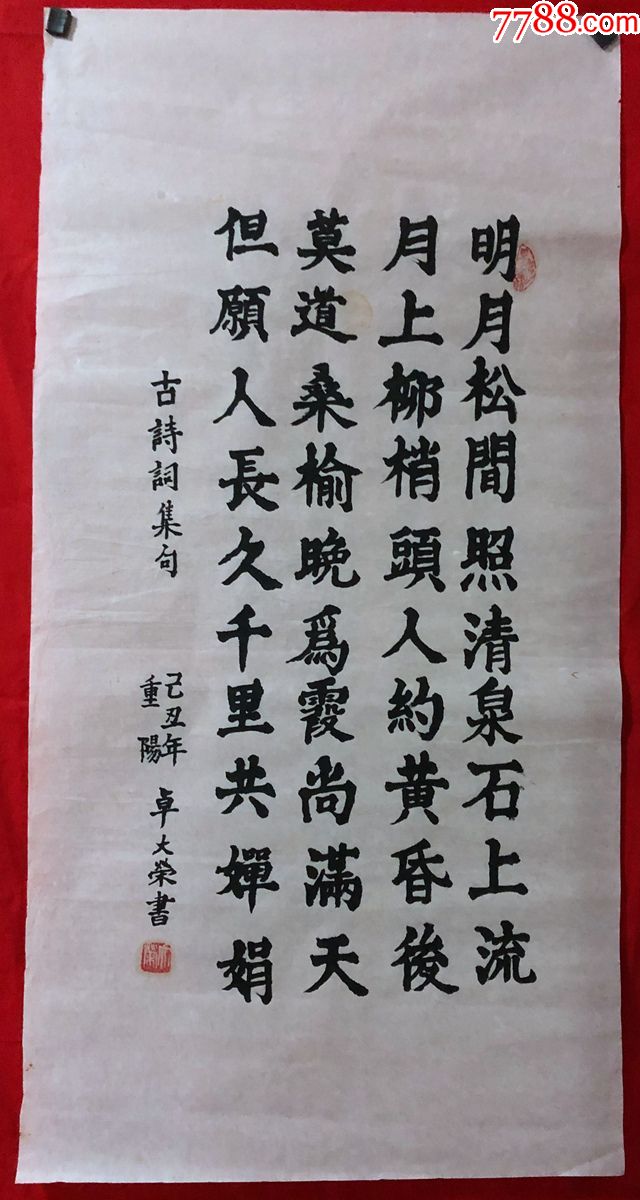 7788.com
明月松間照清泉石上流
月上柳梢頭人約黄昏後
莫道桑榆晚爲霞尚滿天
但願人長久千里共嬋娟
古詩詞集句
己丑年
重陽
卓大榮書